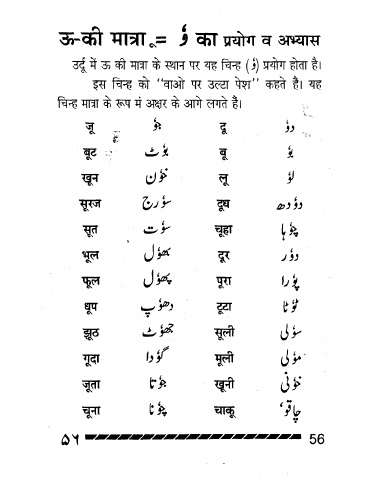 ऊ-की मात्रा ू = ٗو का प्रयोग व अभ्यास
उर्दू में ऊ की मात्रा के स्थान पर यह चिन्ह (ٗو) प्रयोग होता है।
इस चिन्ह को "वाओ पर उल्टा पेश" कहते हैं। यह
चिन्ह मात्रा के रूप में अक्षर के आगे लगते है।
जू جوٗ दू دوٗ
बूट بوٗٹ बू بوٗ
खून خوٗن लू لوٗ
सूरज سوٗرج दूध دوٗدھ
सूत سوٗت चूहा چوٗہا
भूल بھوٗل दूर دوٗر
फूल پھوٗل पूरा پوٗرا
धूप دھوٗپ टूटा ٹوٗٹا
झूठ جھوٗٹ सूली سوٗلی
गूदा گوٗدا मूली موٗلی
जूता جوٗتا खूनी خوٗنی
चूना چوٗنا चाकू چاقوٗ
۵۶ 56